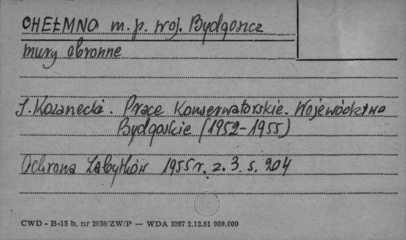 CHEŁMNO m. p. woj. Bydgoszcz
mury obronne
J. Kozanecki. Prace Konserwatorskie. Województwo
Bydgoskie (1952-1955)
Ochrona Zabytków 1955 r. z. 3. s. 204
CWD - B-13 b, nr 2659/ZW/P — WDA 3287 2.12.61 989.000